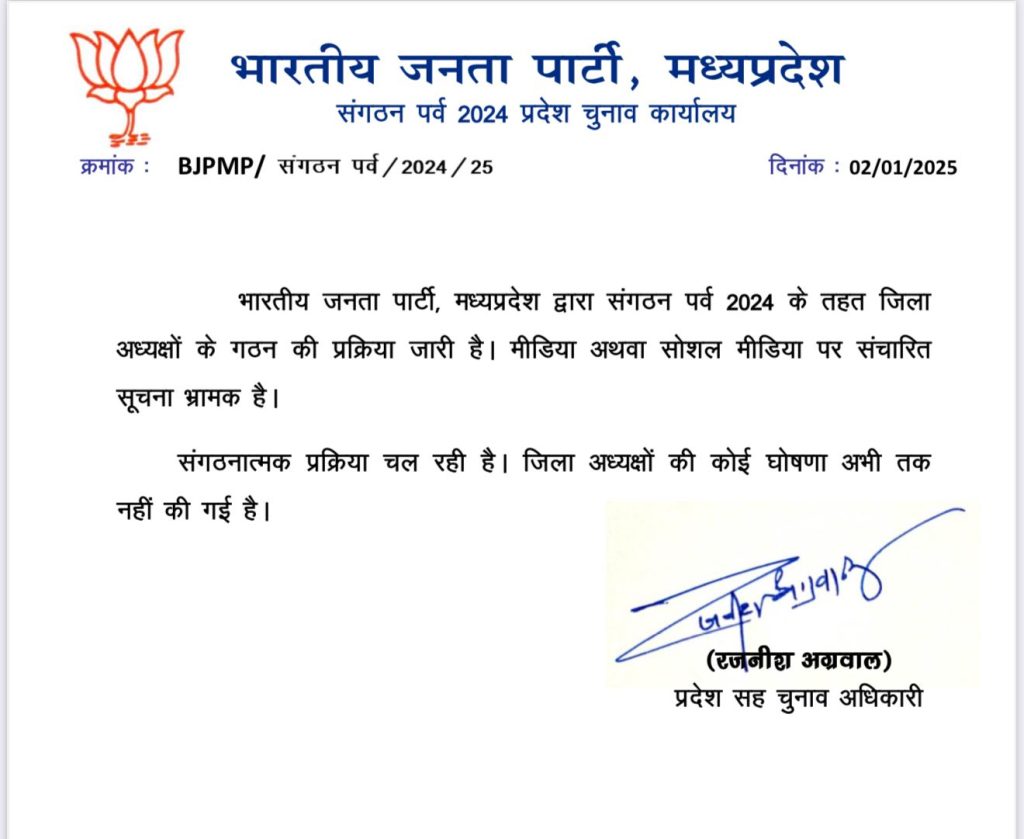 भारतीय जनता पार्टी, मध्यप्रदेश
संगठन पर्व 2024 प्रदेश चुनाव कार्यालय
क्रमांक : BJPMP/ संगठन पर्व / 2024 / 25 दिनांक : 02/01/2025
भारतीय जनता पार्टी, मध्यप्रदेश द्वारा संगठन पर्व 2024 के तहत जिला
अध्यक्षों के गठन की प्रक्रिया जारी है। मीडिया अथवा सोशल मीडिया पर संचारित
सूचना भ्रामक है।
संगठनात्मक प्रक्रिया चल रही है। जिला अध्यक्षों की कोई घोषणा अभी तक
नहीं की गई है।
(रजनीश अग्रवाल)
प्रदेश सह चुनाव अधिकारी